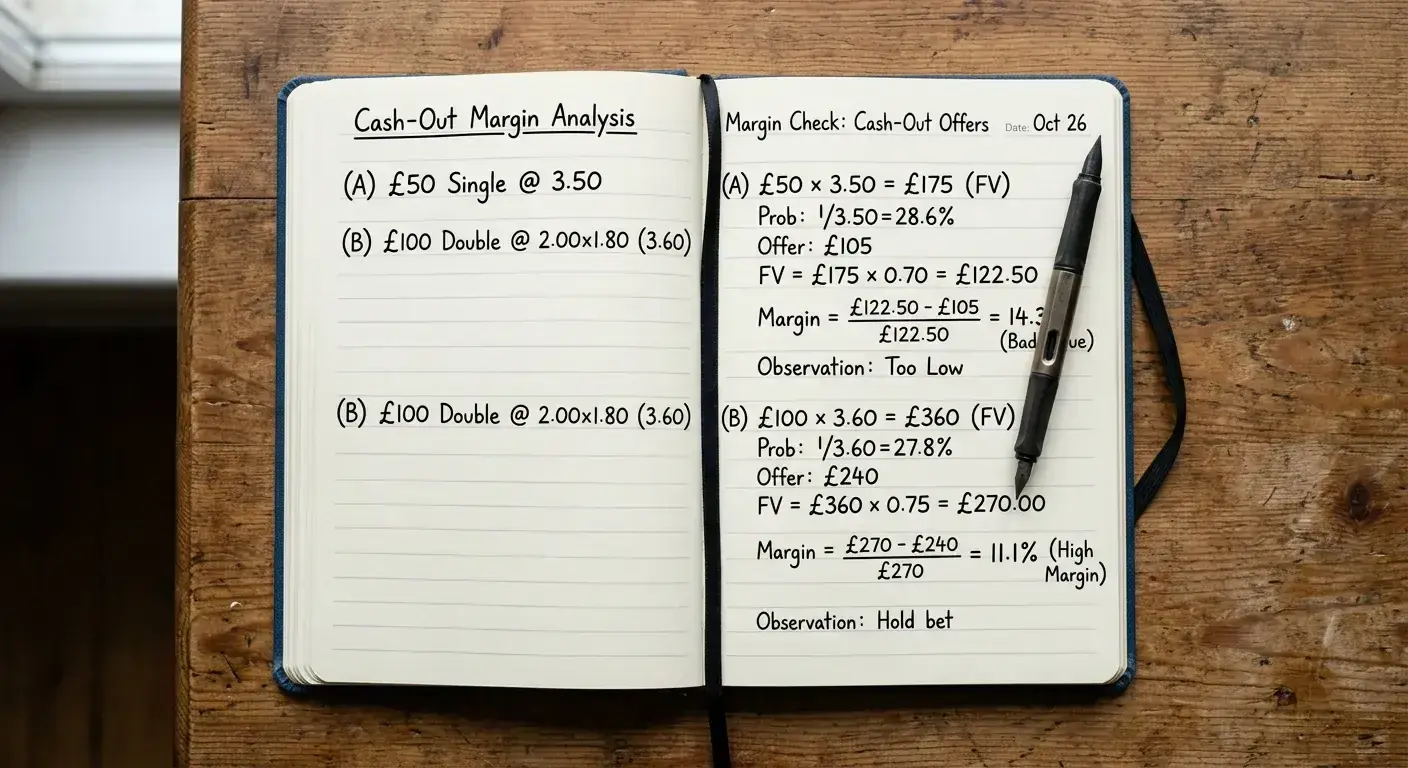 Cash-Out Margin Analysis
(A) £50 Single @ 3.50
(B) £100 Double @ 2.00x1.80 (3.60)
(B) £100 Double @ 2.00x1.80 (3.60)
Margin Check: Cash-Out Offers Date: Oct 26
(A) £50 × 3.50 = £175 (FV)
Prob: 1/3.50 = 28.6%
Offer: £105
FV = £175 × 0.70 = £122.50
Margin = £122.50 - £105 / £122.50 = 14.3
Observation: Too Low
(B) £100 × 3.60 = £360 (FV)
Prob: 1/3.60 = 27.8%
Offer: £240
FV = £360 × 0.75 = £270.00
Margin = £270 - £240 / £270 = 11.1% (High
Margin)
Observation: Hold bet